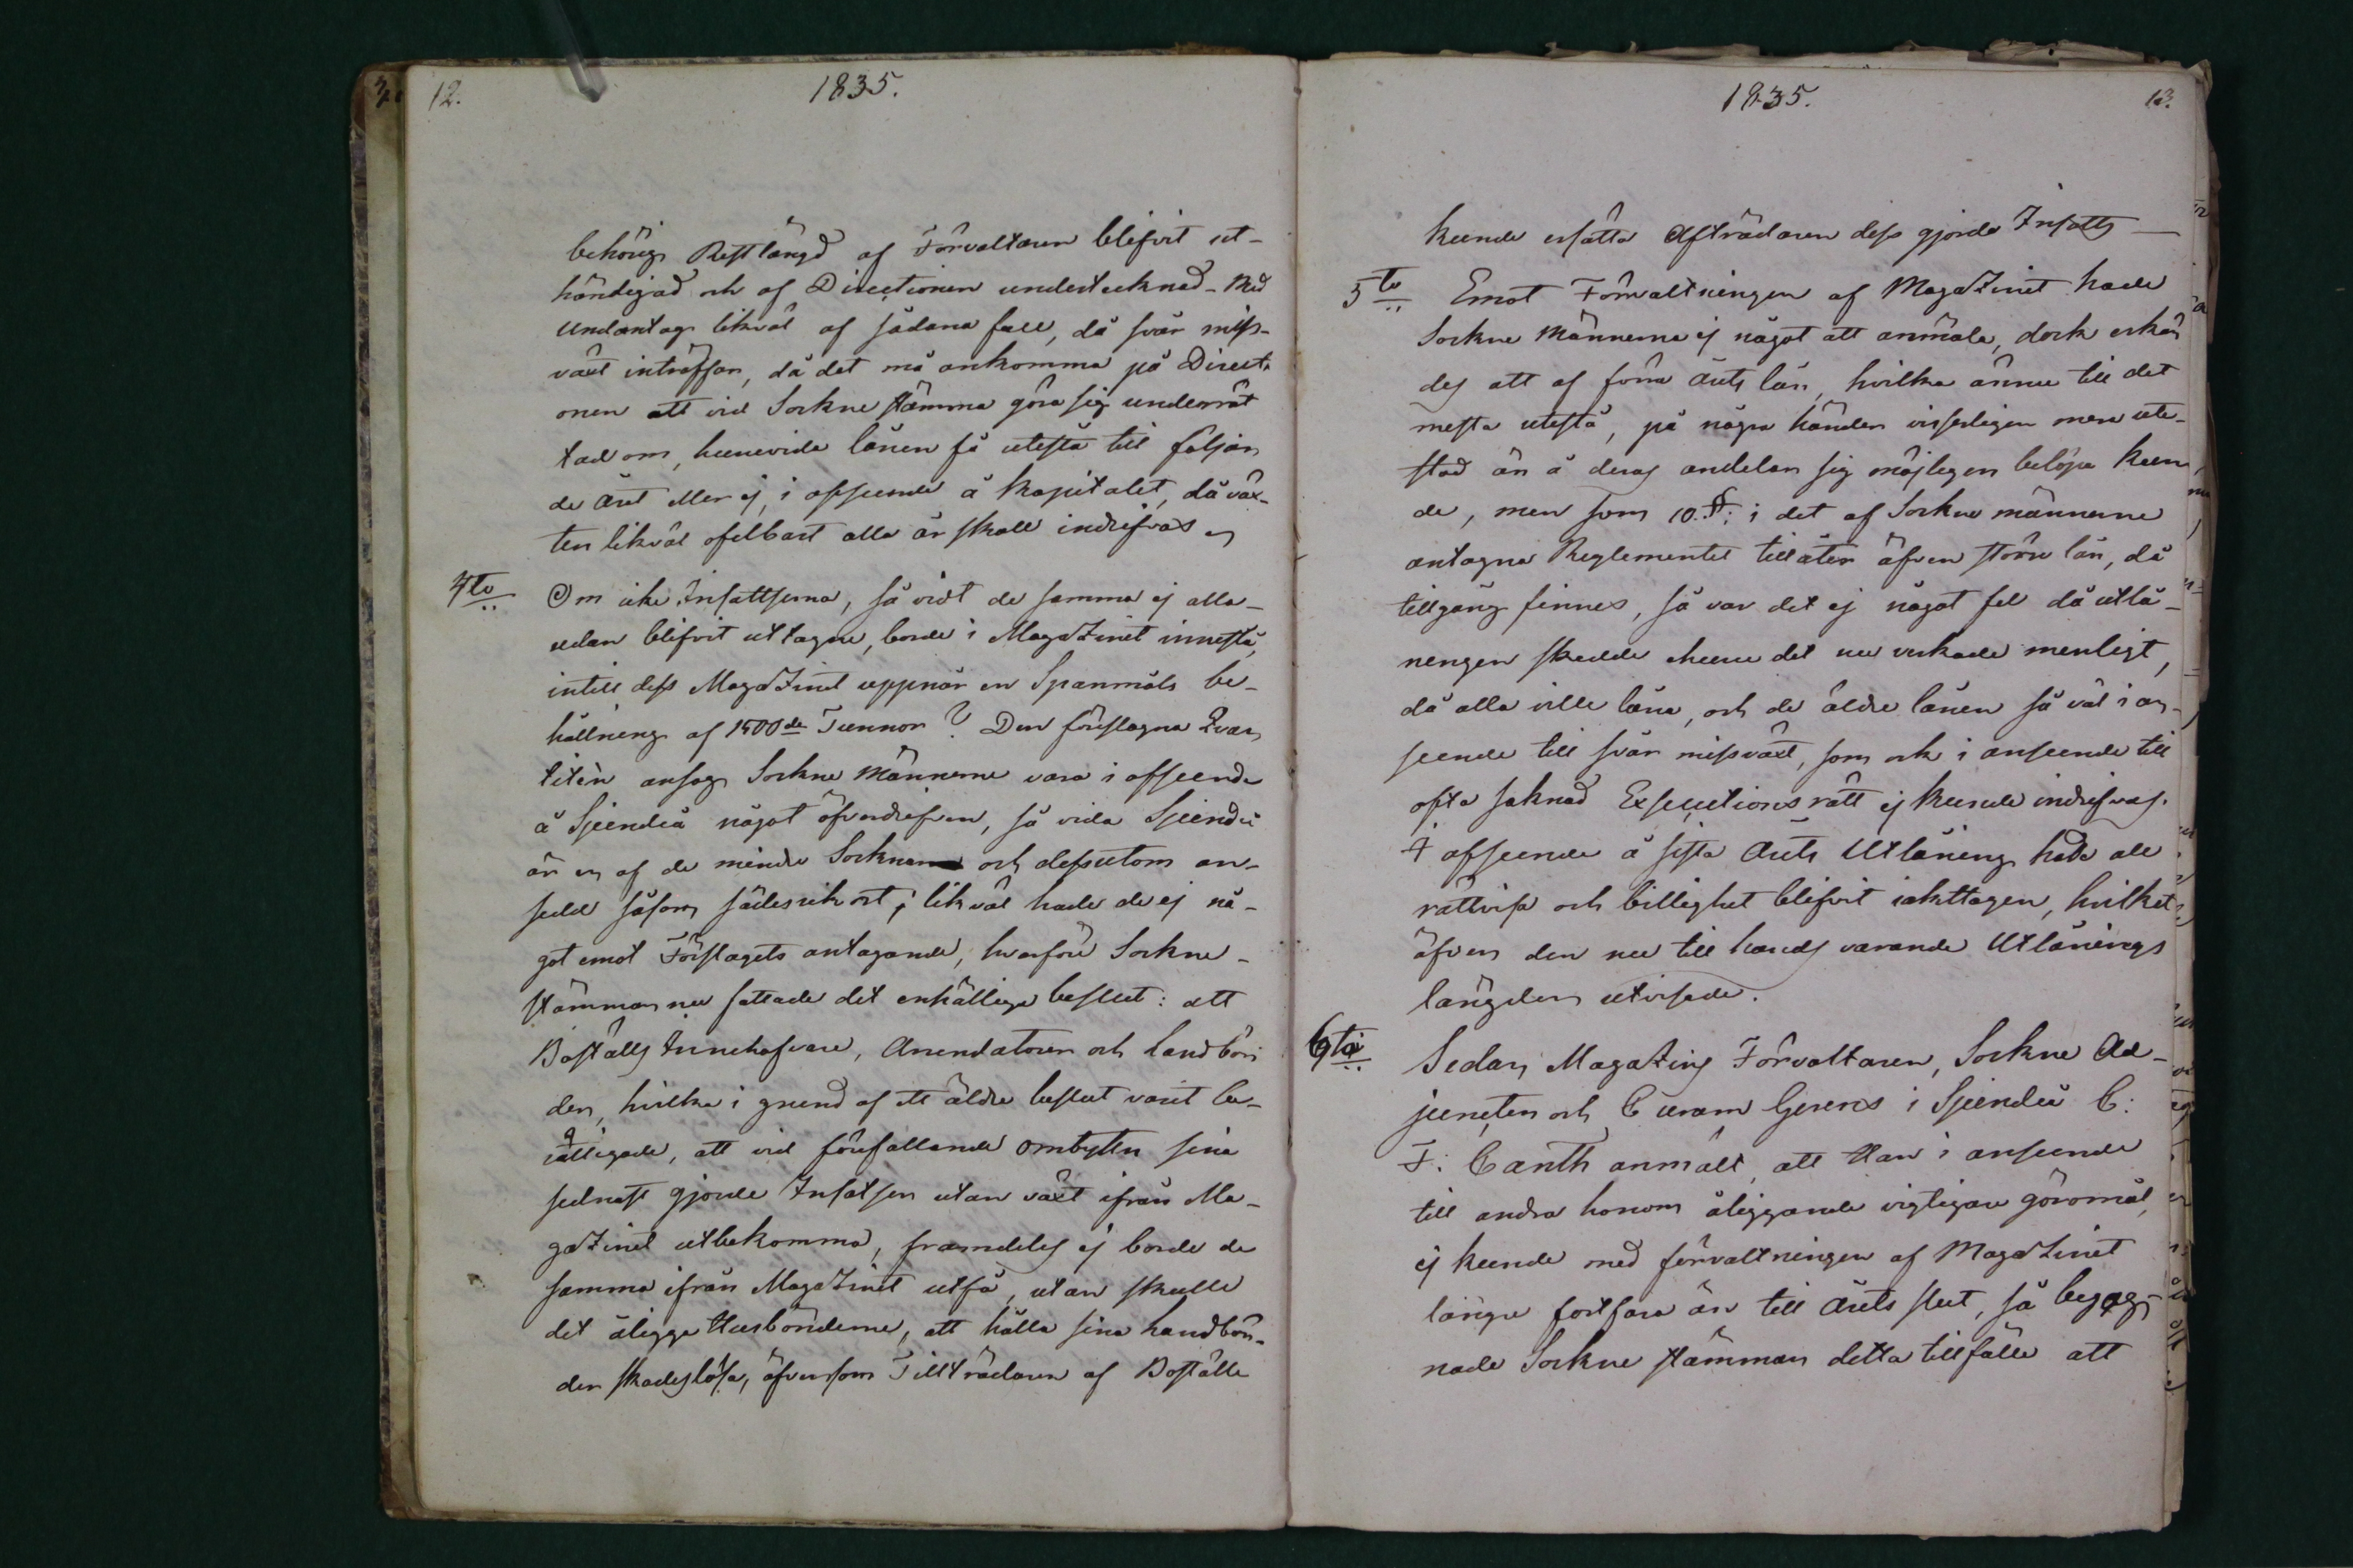 12.
1835.
behörig Restlängd af Förvaltaren blifvit ut-
händigad och af Directionen undertecknad - Med
undantag likväl af sådana fall, då svår miss-
växt inträffar, då det må ankomma på Directi-
onen att vid Sockne stämma göra sig underrät
tad om, huruvida lånen få utestå till följan
de året eller ej, i afseende å kapitalet, då väx-
ten likväl ofelbart alla år skall indrifvas
4to Om icke Insattserna, så vidt de samma ej alla-
redan blifvit uttagne, borde i Magazinet innestå,
intill dess Magazinet uppnår en Spanmåls be-
hållning af 1500de Tunnor? Den föreslagna Qvan
titèn ansågo Sockne Männerne vara i afseende
å Sjundeå något öfverdrifven, så vida Sjundeå
är en af de mindre Socknar och dessutom an-
sedd såsom sädesrik ort; likväl hade de ej nå-
got emot Förslagets antagande, hvarföre Sockne-
stämman nu fattade det enhälliga beslut: att
Boställs Innehafvare, Arendatorer och Landbön
der, hvilka i grund af ett äldre beslut varit be-
rättigade, att vid förefallande ombyten sina
sednast gjorde Insatser utan växt ifrån Ma-
gazinet utbekomma, framdeles ej borde de
samma ifrån Magazinet utfå, utan skulle
det åligga Husbönderne, att hålla sina Landbön-
der skadeslösa, äfvensom Tillträdaren af Boställe
1835.
13.
kunde ersätta Afträdaren dess gjorda Insatts -
5to Emot Förvaltningen af Magazinet hade
Sockne Männerne ej något att anmäla, dock erkän
des att af förra årets lån, hvilka ännu till det
mesta utestå, på några händer visserligen mera ute-
stod än å deras andelar sig möjligen belöpa kun
de, men som 10. §: i det af Sockne männerne
antagna Reglementet tillåter äfven större lån, då
tillgång finnes, så var det ej något fel då utlå-
ningen skedde ehuru det nu verkade menligt,
då alla ville låna, och de äldre lånen så väl i an-
seende till svår missväxt, som ock i anseende till
ofta saknad Executions rätt ej kunde indrifvas.
I afseende å sista årets Utlåning hade all
rättvisa och billighet blifvit iakttagen, hvilket
äfven den nu till hands varande Utlånings
längden utvisade.
6ta Sedan Magazins Förvaltaren, Sockne Ad-
juncten och Curam Gerens i Sjundeå C:
F: Canth anmält, att Han i anseende
till andra honom åliggande vigtigare göromål,
ej kunde med förvaltningen af Magazinet
längre fortfara än till årets slut, så begag-
nade Sockne stämman detta tillfälle att